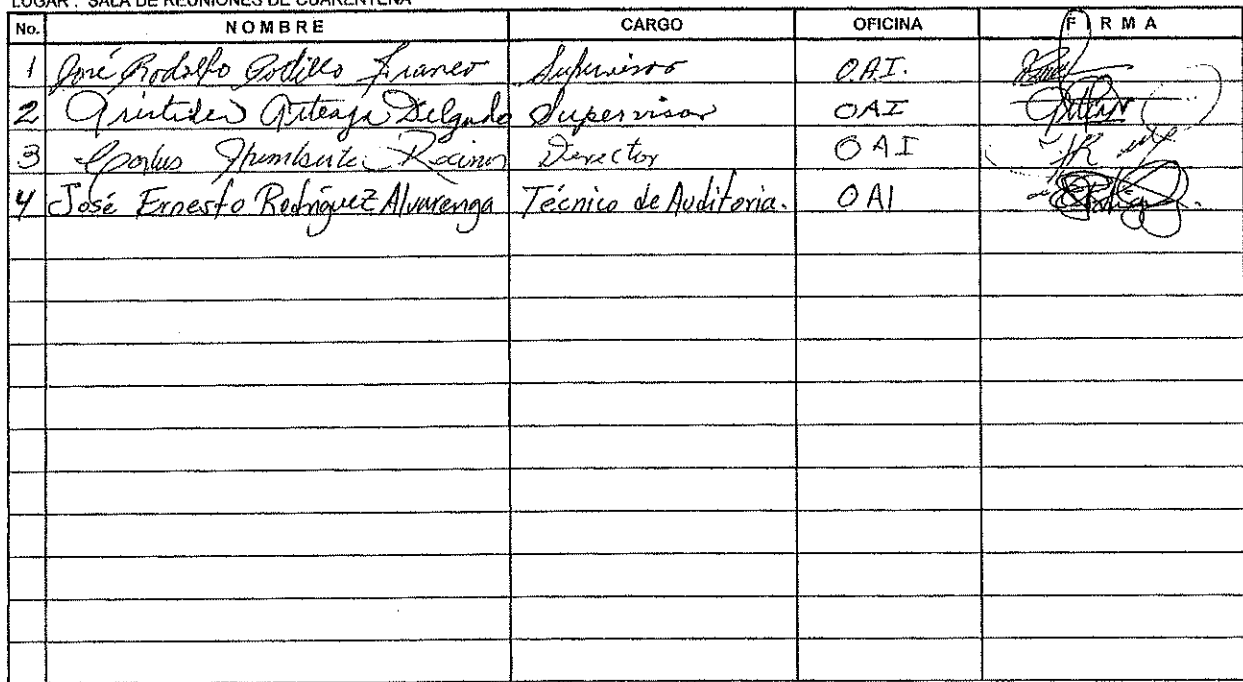 LUGAR : SALA DE REUNIONES DE CUARENTENA
No. NOMBRE CARGO OFICINA FIRMA
1 José Rodolfo Franco Supervisor O.A.I.
2 Arístides Arteaga Delgado Supervisor OAI
3 Carlos Humberto Recinos Director OAI
4 José Ernesto Rodríguez Alvarenga Técnico de Auditoria. OAI